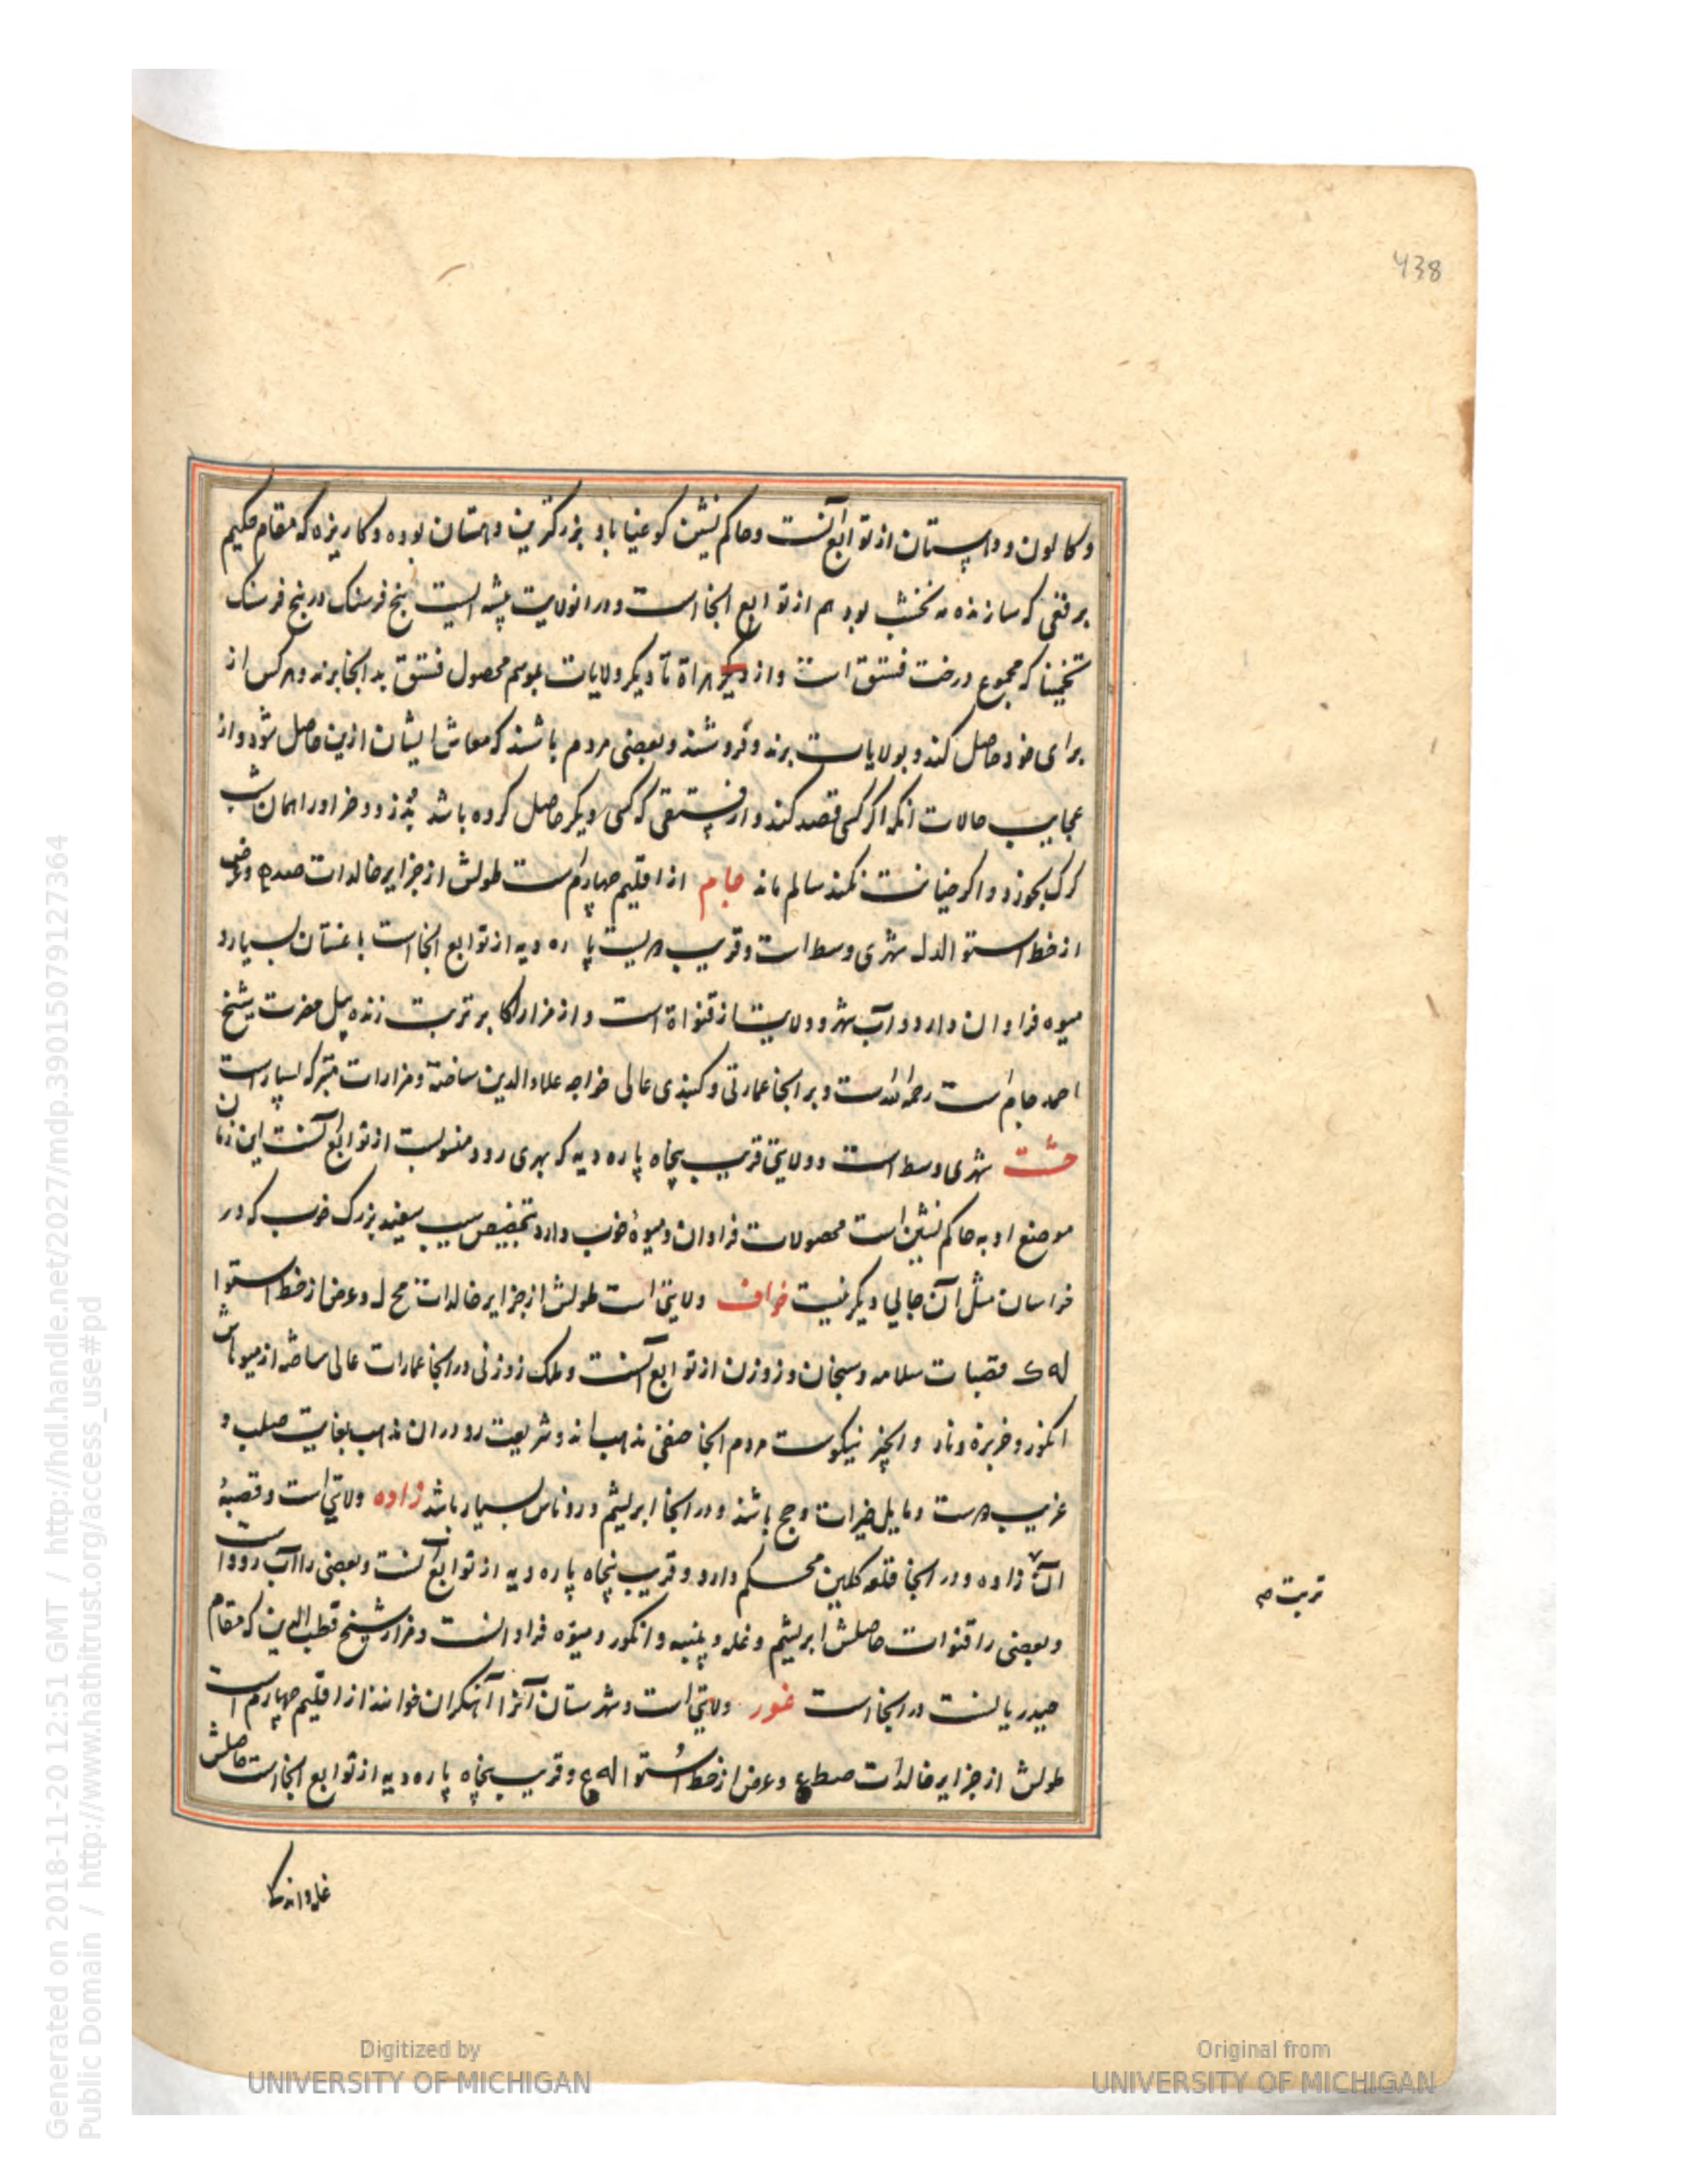 438
وکالون و داپستان از توابع آنست و حاکم نشین کوغنیاباد بزرکترین داهستان بوده و کاریزه که مقام حکیم
برقعی که سازنده مه نخشب بود هم از توابع انجا است و در انولایت پیشه ایست پنج فرسنک در پنج فرسنک
تخمینا که مجموع درخت فستق است و از هراة تا دیکر ولایات بموسم محصول فستق بدانجا برند و هر کس از
برای خود حاصل کند و بولایات برند و فروشند و بعضی مردم باشند که معاش ایشان ازین حاصل شود و از
عجایب حالات انکه اکر کسی قصد کند و از فستقی که کسی دیکر حاصل کرده باشد بدزدد خر او را همان شب
کرک بخورد و اکر خیانت نکند سالم ماند جام از اقلیم چهارم است طولش از جزایر خالدات و عرض
از خط استوا لد ل شهری وسط است و قریب دویست پاره دیه از توابع انجا است باغستان بسیار و
میوه فراوان دارد و آب شهر و ولایت از قنواة است و از مزار اکابر تربت زنده پیل حضرت شیخ
احمد جام است رحمه الله است و بر انجا عمارتی و کنبذی عالی خواجه علاء الدین ساخته و مزارات متبرکه بسیار است
خشت شهری وسط است و ولایتی قریب پنجاه پاره دیه که بهری رود منسوبست از توابع آنست این زمان
موضع اوبه حاکم نشین است محصولات فراوان و میوهٔ خوب دارد بتخصیص سیب سفید بزرک خوب که در
خراسان مثل آن جایی دیکر نیست خواف ولایتی است طولش از جزایر خالدات صح ل و عرض از خط استوا
له ک قصبات سلامه و سنجان و زوزن از توابع آنست و ملک زوزنی در انجا عمارات عالی ساخته از میوهاش
انکور و خربزه و نار و انجیر نیکوست مردم انجا حنفی مذهب اند و شریعت رو در ان مذهب بغایت صلب و
غریب دوست و مایل خیرات و حج باشند و در انجا ابریشم و روناس بسیار باشد زاوه ولایتی است و قصبهٔ
آن زاوه و در انجا قلعه کلین محکم دارد و قریب پنجاه پاره دیه از توابع آنست و بعضی را آب رود است
و بعضی را قنوات حاصلش ابریشم و غله و پنبه و انکور و میوه فراوانست و مزار شیخ قطب الدین که مقام
حیدریانست در انجا است غور ولایتی است و شهرستان آنرا آهنکران خوانند از اقلیم چهارم است
طولش از جزایر خالدات صط ع و عرض از خط استوا له ع و قریب پنجاه پاره دیه از توابع انجا است حاصلش
تربت صح
Digitized by
UNIVERSITY OF MICHIGAN
Original from
UNIVERSITY OF MICHIGAN
Generated on 2018-11-20 12:51 GMT / http://hdl.handle.net/2027/mdp.39015079127364
Public Domain / http://www.hathitrust.org/access_use#pd